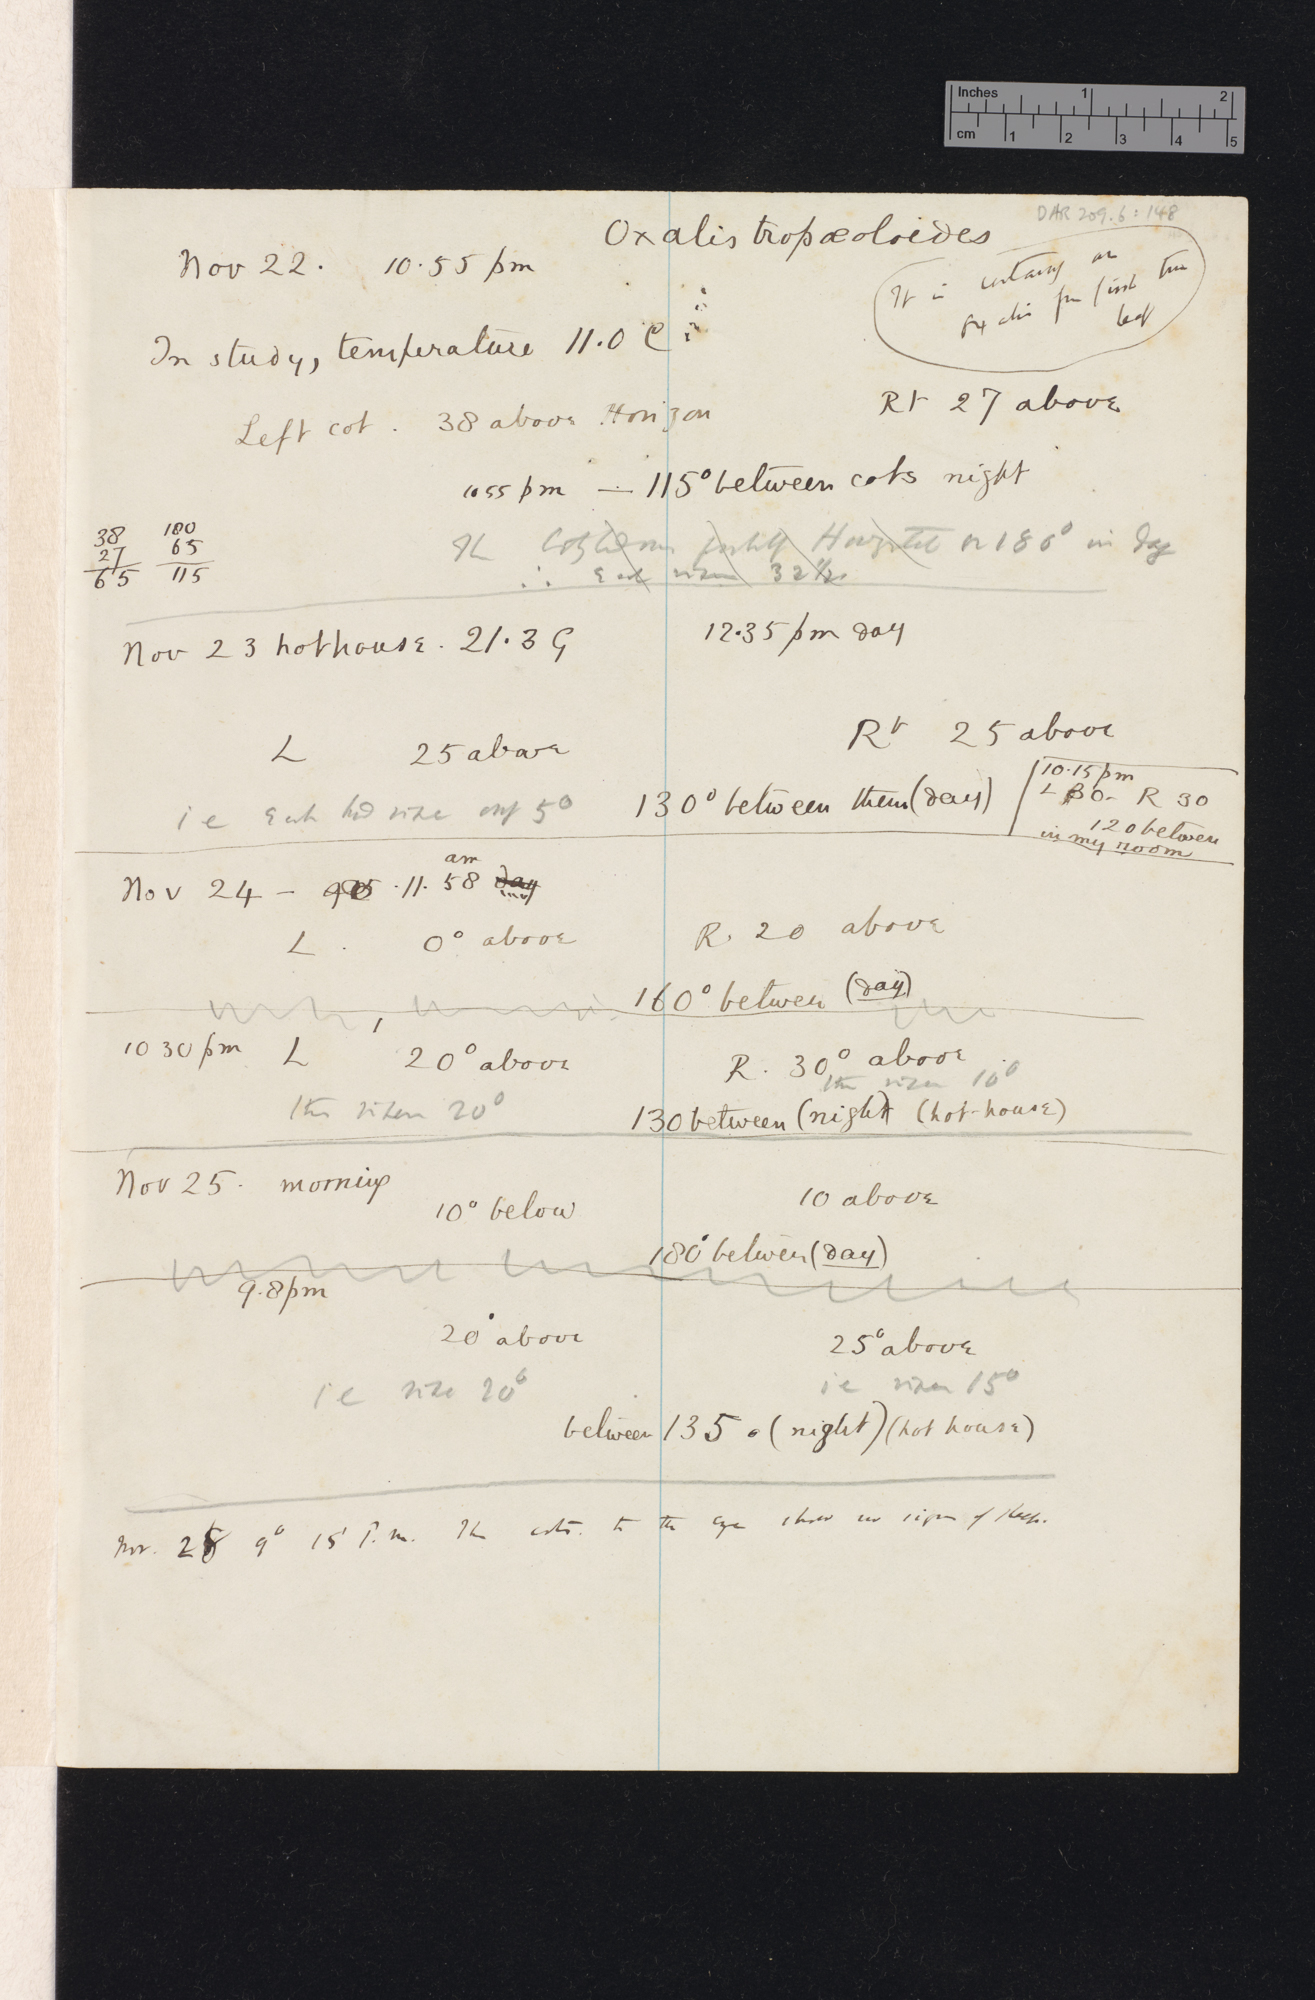 Inches 1 2
cm 1 2 3 4 5
DAR 209.6 : 148
Oxalis tropæoloides
Nov 22. 10.55 pm
It is certainly an
Oxalis from first true
leaf
In study, temperature 11.0 C
Left cot. 38 above Horizon
Rt 27 above
1055 pm — 115° between cots night
38 180
27 65
65 115
The Cotyledons Horizontal or 180° in day
∴ Each risen 32 1/2
Nov 23 hothouse. 21.3 C
12.35 pm day
L 25 above
Rt 25 above
ie Each had rise only 5°
130° between them (day)
10.15 pm
L 30 - R 30
120 between
in my room
Nov 24 - 11. 58 am day
L. 0° above
R. 20 above
160° between (day)
10 30 pm L 20° above
R. 30° above
this risen 10°
this risen 20°
130 between (night) (hot-house)
Nov 25. morning
10° below
10 above
180° between (day)
9.8 pm
20° above
25° above
ie rise 20°
ie risen 15°
between 135° (night) (hot house)
Nov. 25 9° 15' P.m. The cots. to the eye show no signs of sleep.